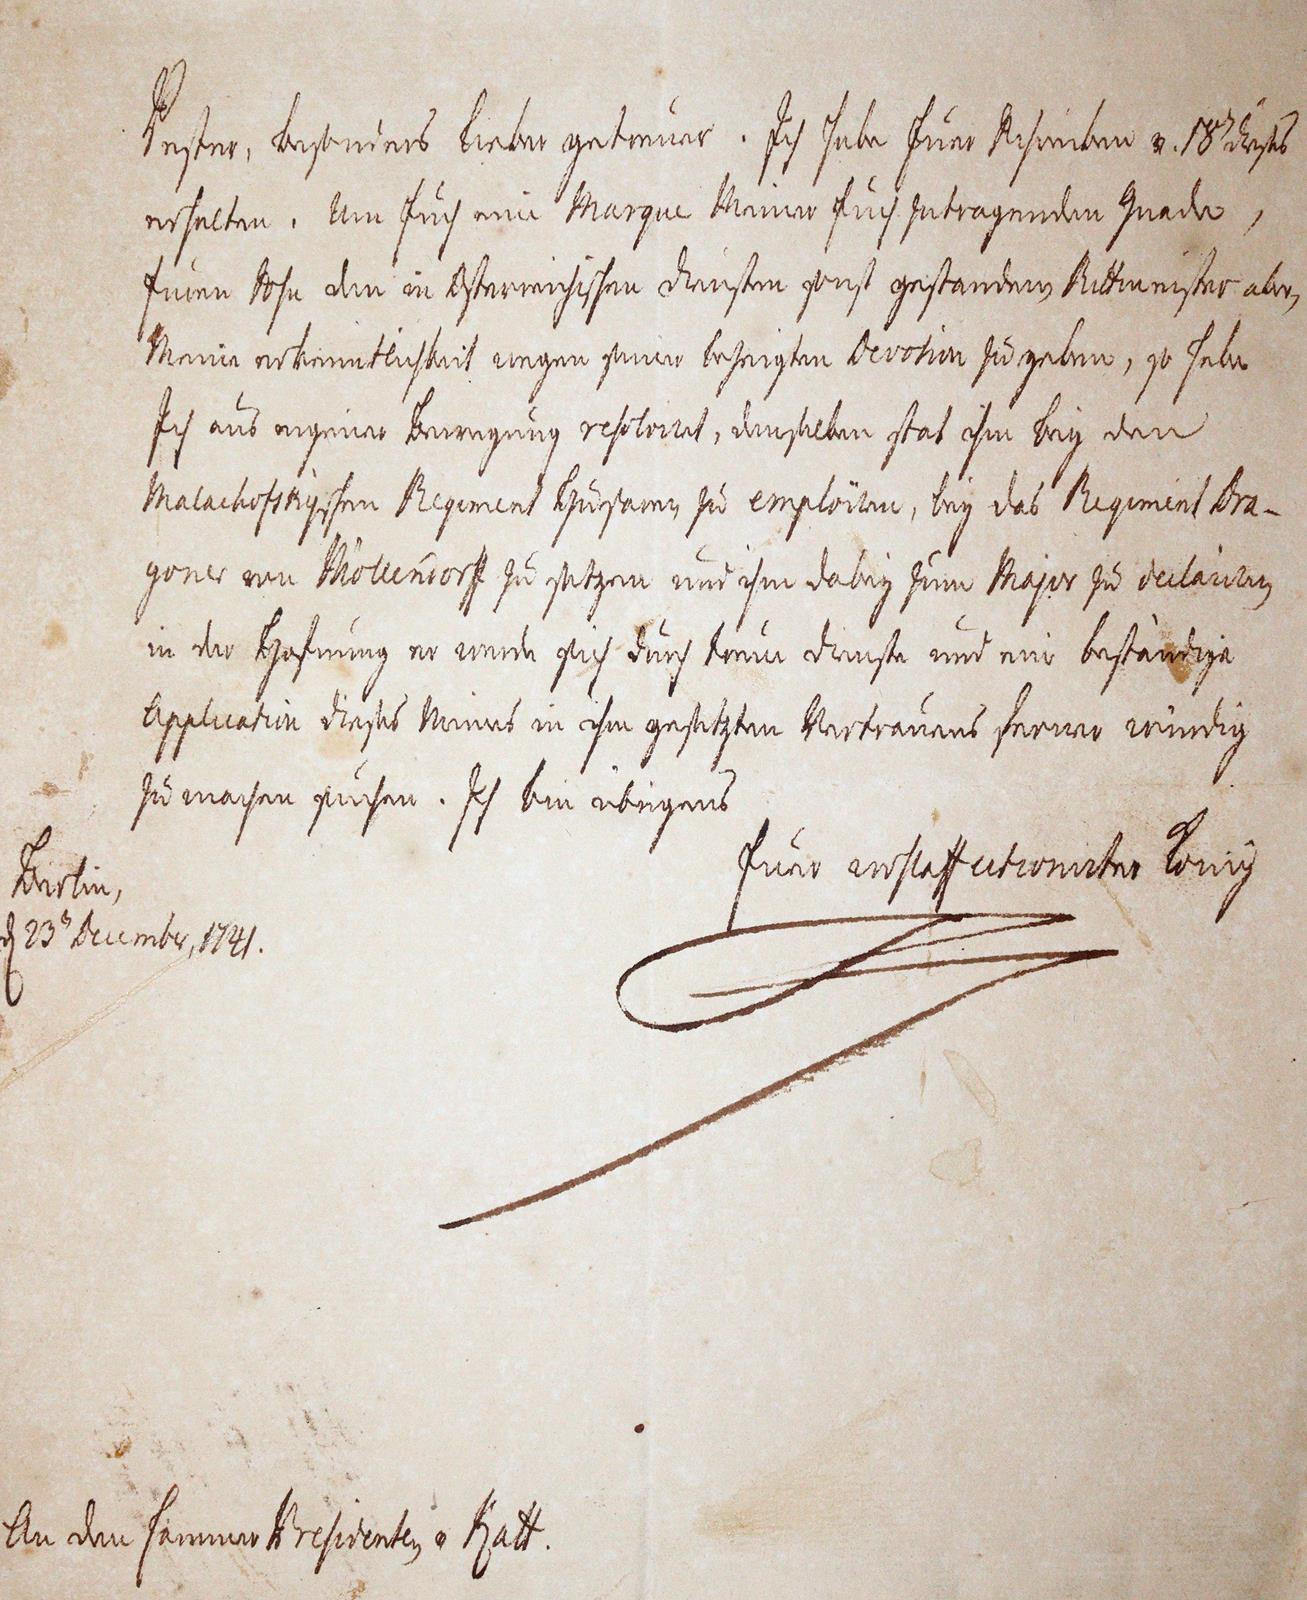 Vester, besonders Lieber getreuer. Ich habe Euer Schreiben v. 18t dieses
erhalten. Um Euch eine Marque Meiner Euch zutragenden Gnade,
Euren Sohn den in Österreichischen Diensten sonst gestandenen Rittmeister aber,
Meine erkenntlichkeit wegen seiner bezeigten Devotion zu geben, so habe
Ich aus eigener Bewegung resolviret, denselben stat ihn bey den
Malachofskyschen Regiment Husaren zu emploïren, bey das Regiment Dra-
goner von Möllendorff zu setzen und ihn dabey zum Major zu declariren
in der Hofnung er werde sich durch treue Dienste und eine beständige
Application dieses Meines in ihn gesetzten Vertrauens ferner würdig
zu machen suchen. Ich bin übrigens
Euer wohlaffectionirter König
Berlin,
d 23t December, 1741.
An den Cammer Presidenten v Katt.